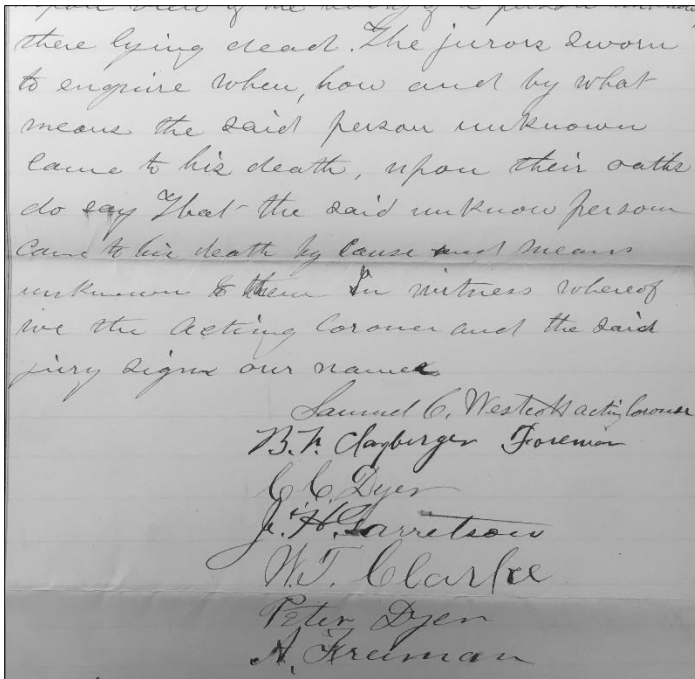 upon view of the body of a person unknown
there lying dead. The jurors sworn
to enquire when, how and by what
means the said person unknown
came to his death, upon their oaths
do say That the said unknow person
came to his death by cause and means
unknown to them In witness whereof
we the acting Coroner and the said
jury signe our names
Samuel C. Westcott acting Coroner
B. F. Clayberger Foreman
C. C. Dyer
J. H. Garretson
W. T. Clarke
Peter Dyer
A. Freiman